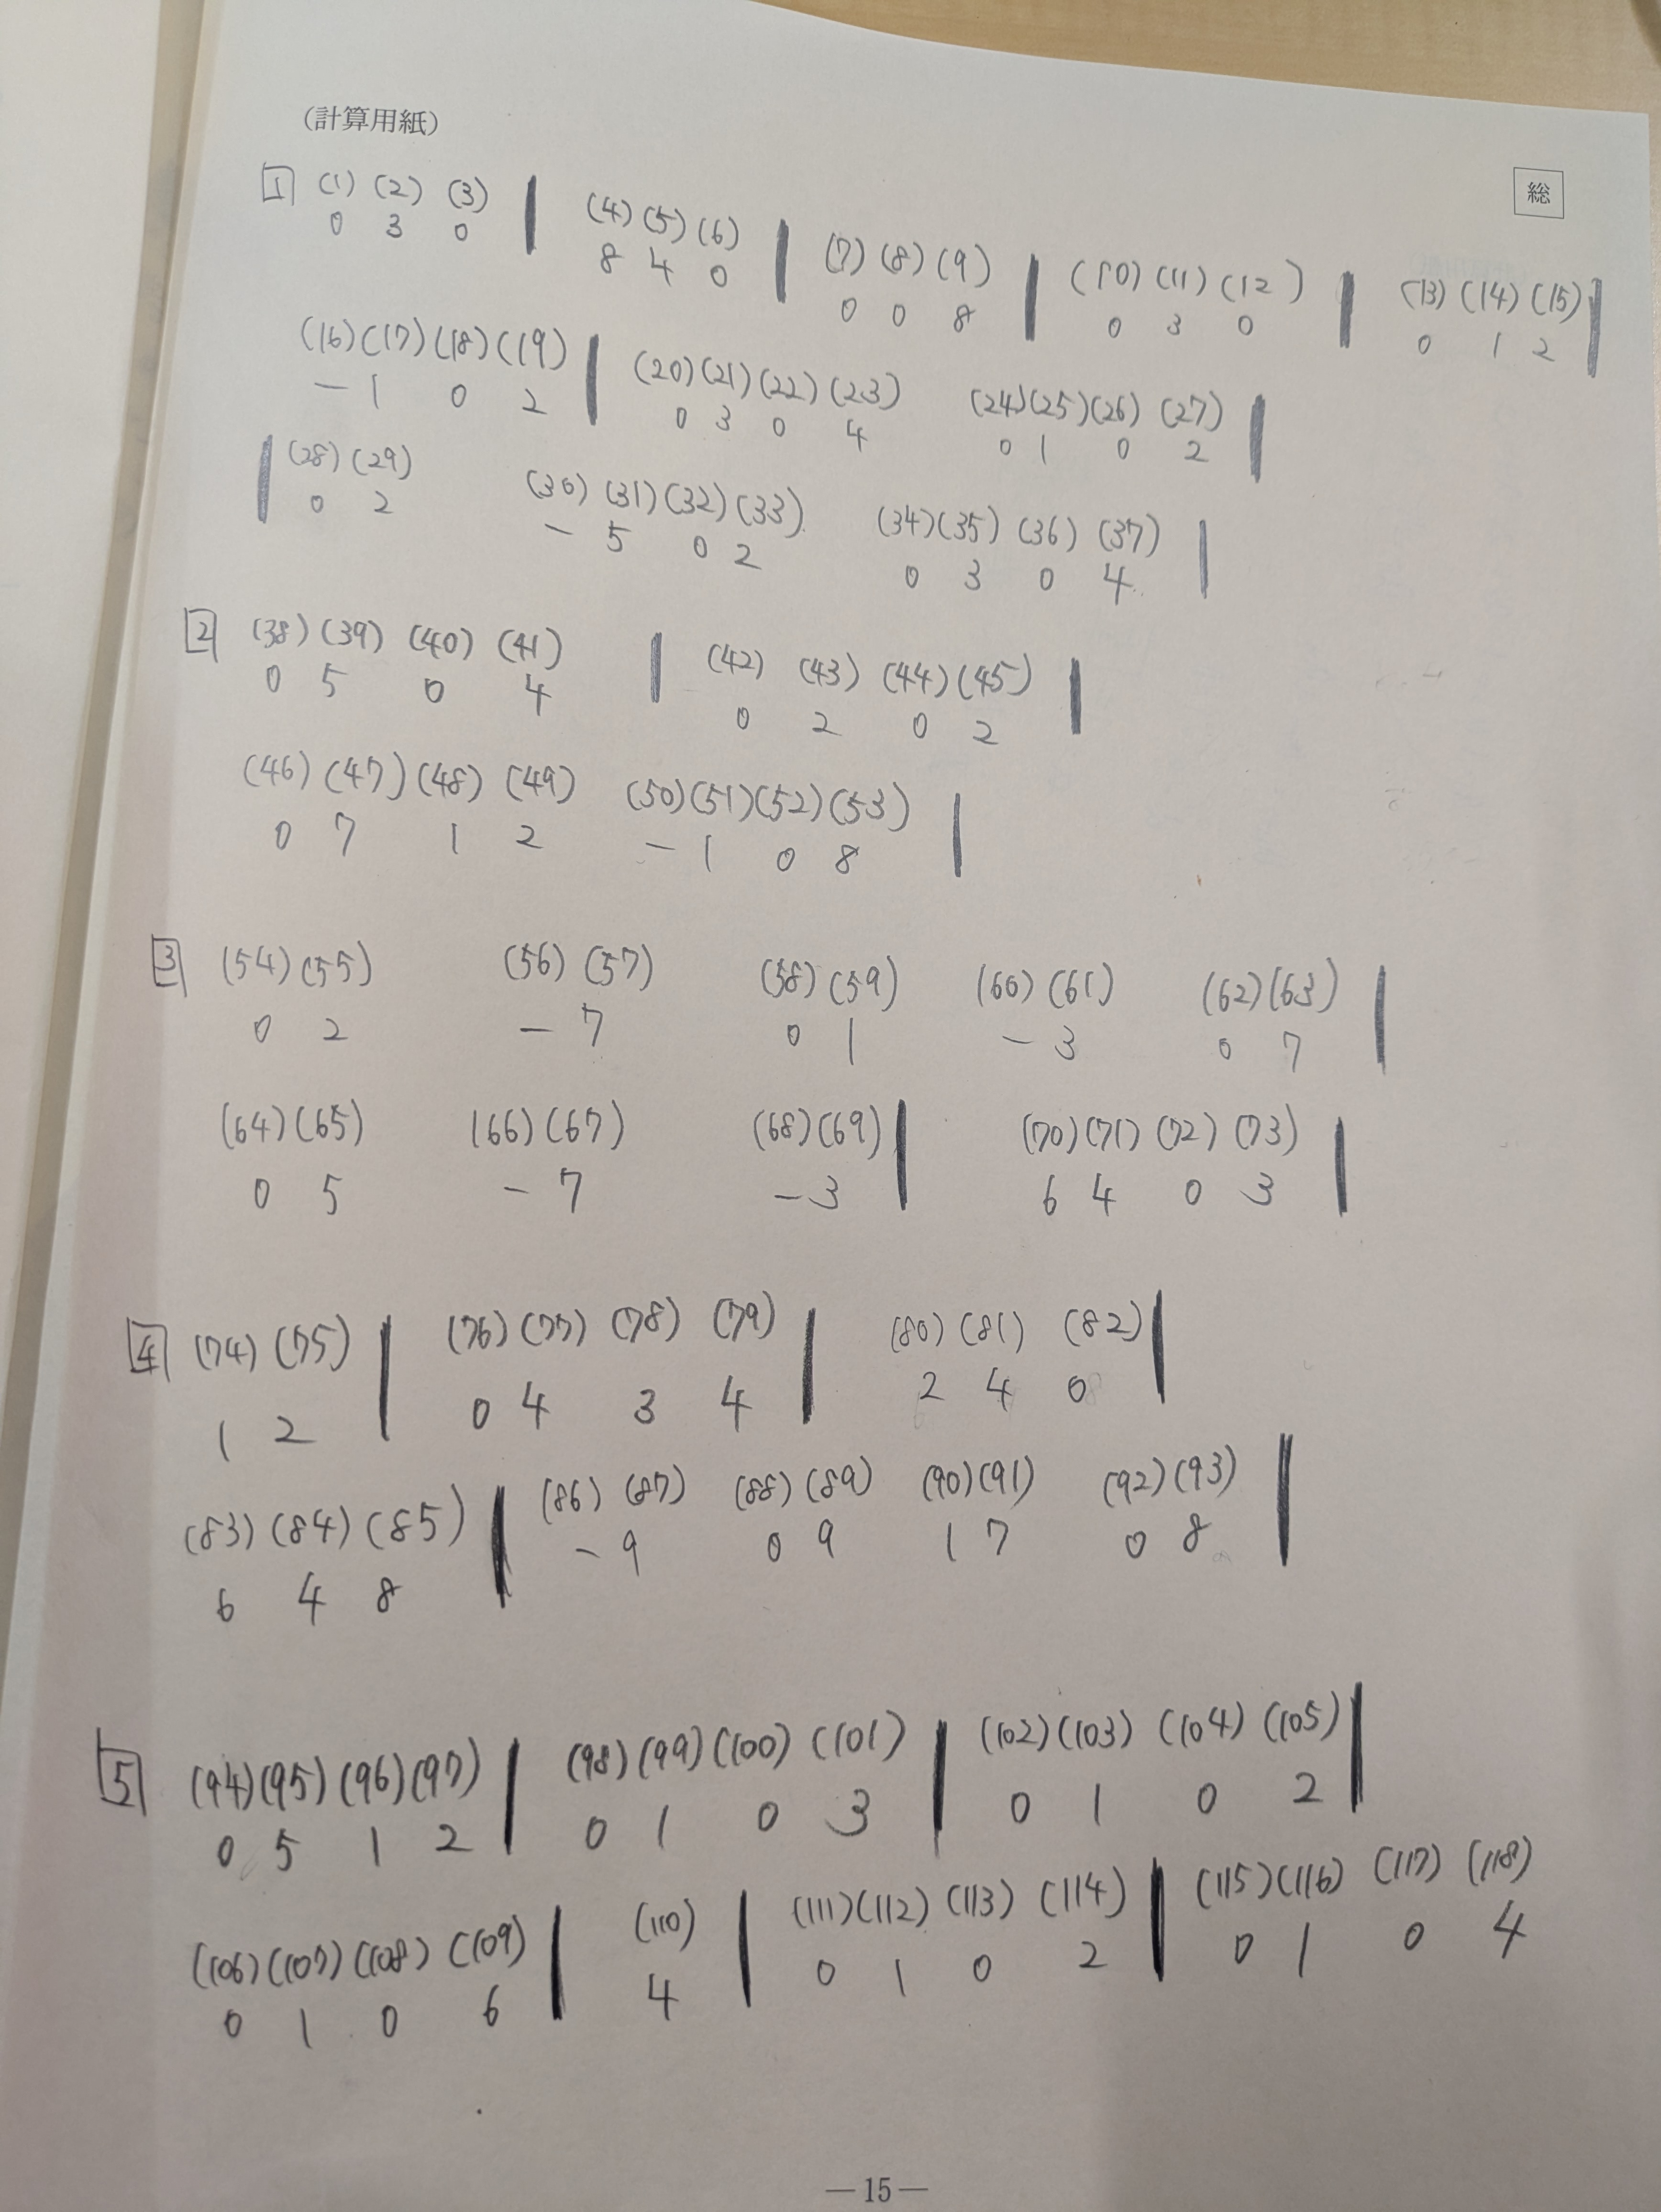 (計算用紙)
総
1 (1) (2) (3) (4) (5) (6) (7) (8) (9) (10) (11) (12) (13) (14) (15)
0 3 0 8 4 0 0 0 8 0 3 0 0 1 2
(16) (17) (18) (19) (20) (21) (22) (23) (24) (25) (26) (27)
- 1 0 2 0 3 0 4 0 1 0 2
(28) (29) (30) (31) (32) (33) (34) (35) (36) (37)
0 2 - 5 0 2 0 3 0 4
2 (38) (39) (40) (41) (42) (43) (44) (45)
0 5 0 4 0 2 0 2
(46) (47) (48) (49) (50) (51) (52) (53)
0 7 1 2 - 1 0 8
3 (54) (55) (56) (57) (58) (59) (60) (61) (62) (63)
0 2 - 7 0 1 - 3 0 7
(64) (65) (66) (67) (68) (69) (70) (71) (72) (73)
0 5 - 7 - 3 6 4 0 3
4 (74) (75) (76) (77) (78) (79) (80) (81) (82)
1 2 0 4 3 4 2 4 0
(83) (84) (85) (86) (87) (88) (89) (90) (91) (92) (93)
6 4 8 - 9 0 9 1 7 0 8
5 (94) (95) (96) (97) (98) (99) (100) (101) (102) (103) (104) (105)
0 5 1 2 0 1 0 3 0 1 0 2
(106) (107) (108) (109) (110) (111) (112) (113) (114) (115) (116) (117) (118)
0 1 0 6 4 0 1 0 2 0 1 0 4
—15—